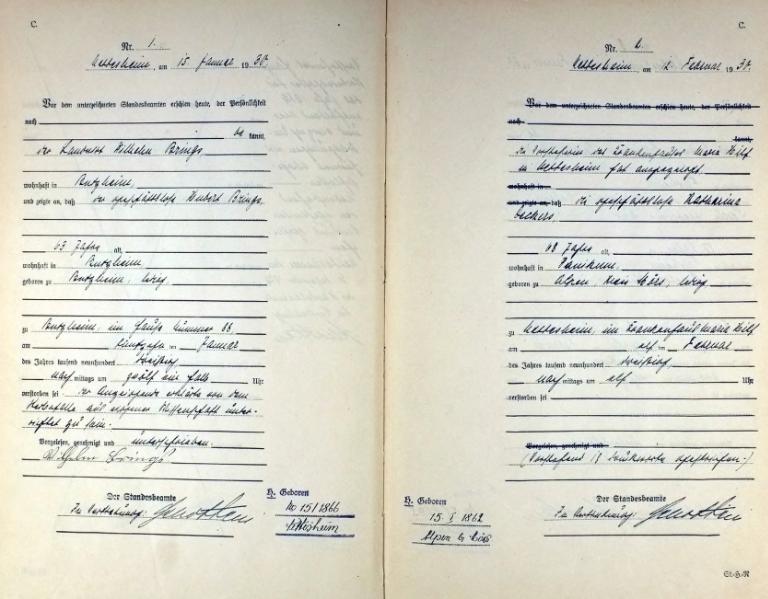 C.
Nr. 1.
Nettesheim, am 15 Januar 1930.
Vor dem unterzeichneten Standesbeamten erschien heute, der Persönlichkeit
nach
be kannt,
der Landwirt Wilhelm Brings
wohnhaft in Butzheim,
und zeigte an, daß der geschäftslose Hubert Brings,
63 Jahre alt,
wohnhaft in Butzheim,
geboren zu Butzheim, ledig.
zu Butzheim, im Hause Nummer 88
am fünfzehn ten Januar
des Jahres tausend neunhundert dreißig
nach mittags um zwölf ein halb Uhr
verstorben sei. Der Anzeigende erklärte von dem
Sterbefalle aus eigener Wissenschaft unter-
richtet zu sein.
Vorgelesen, genehmigt und unterschrieben.
Wilhelm Brings
Der Standesbeamte
In Vertretung:
H. Geboren
No 15 / 1866
Nettesheim
C.
Nr. 2.
Nettesheim am 12 Februar 1930.
Vor dem unterzeichneten Standesbeamten erschien heute, der Persönlichkeit
nach
kannt,
die Vorsteherin des Krankenhauses Maria Hilf
in Nettesheim hat angezeigt,
wohnhaft in
und zeigte an, daß die geschäftslose Katharina
Beckers,
68 Jahre alt,
wohnhaft in
geboren zu Alpen, Kreis Mörs, ledig
zu Nettesheim, im Krankenhaus Maria Hilf
am elf ten Februar
des Jahres tausend neunhundert dreißig
nach mittags um elf Uhr
verstorben sei
Vorgelesen, genehmigt und
(Vorstehend 13 Druckworte gestrichen.)
Der Standesbeamte
In Vertretung:
H. Geboren
15. I 1862
Alpen b. Mörs
St-H-R